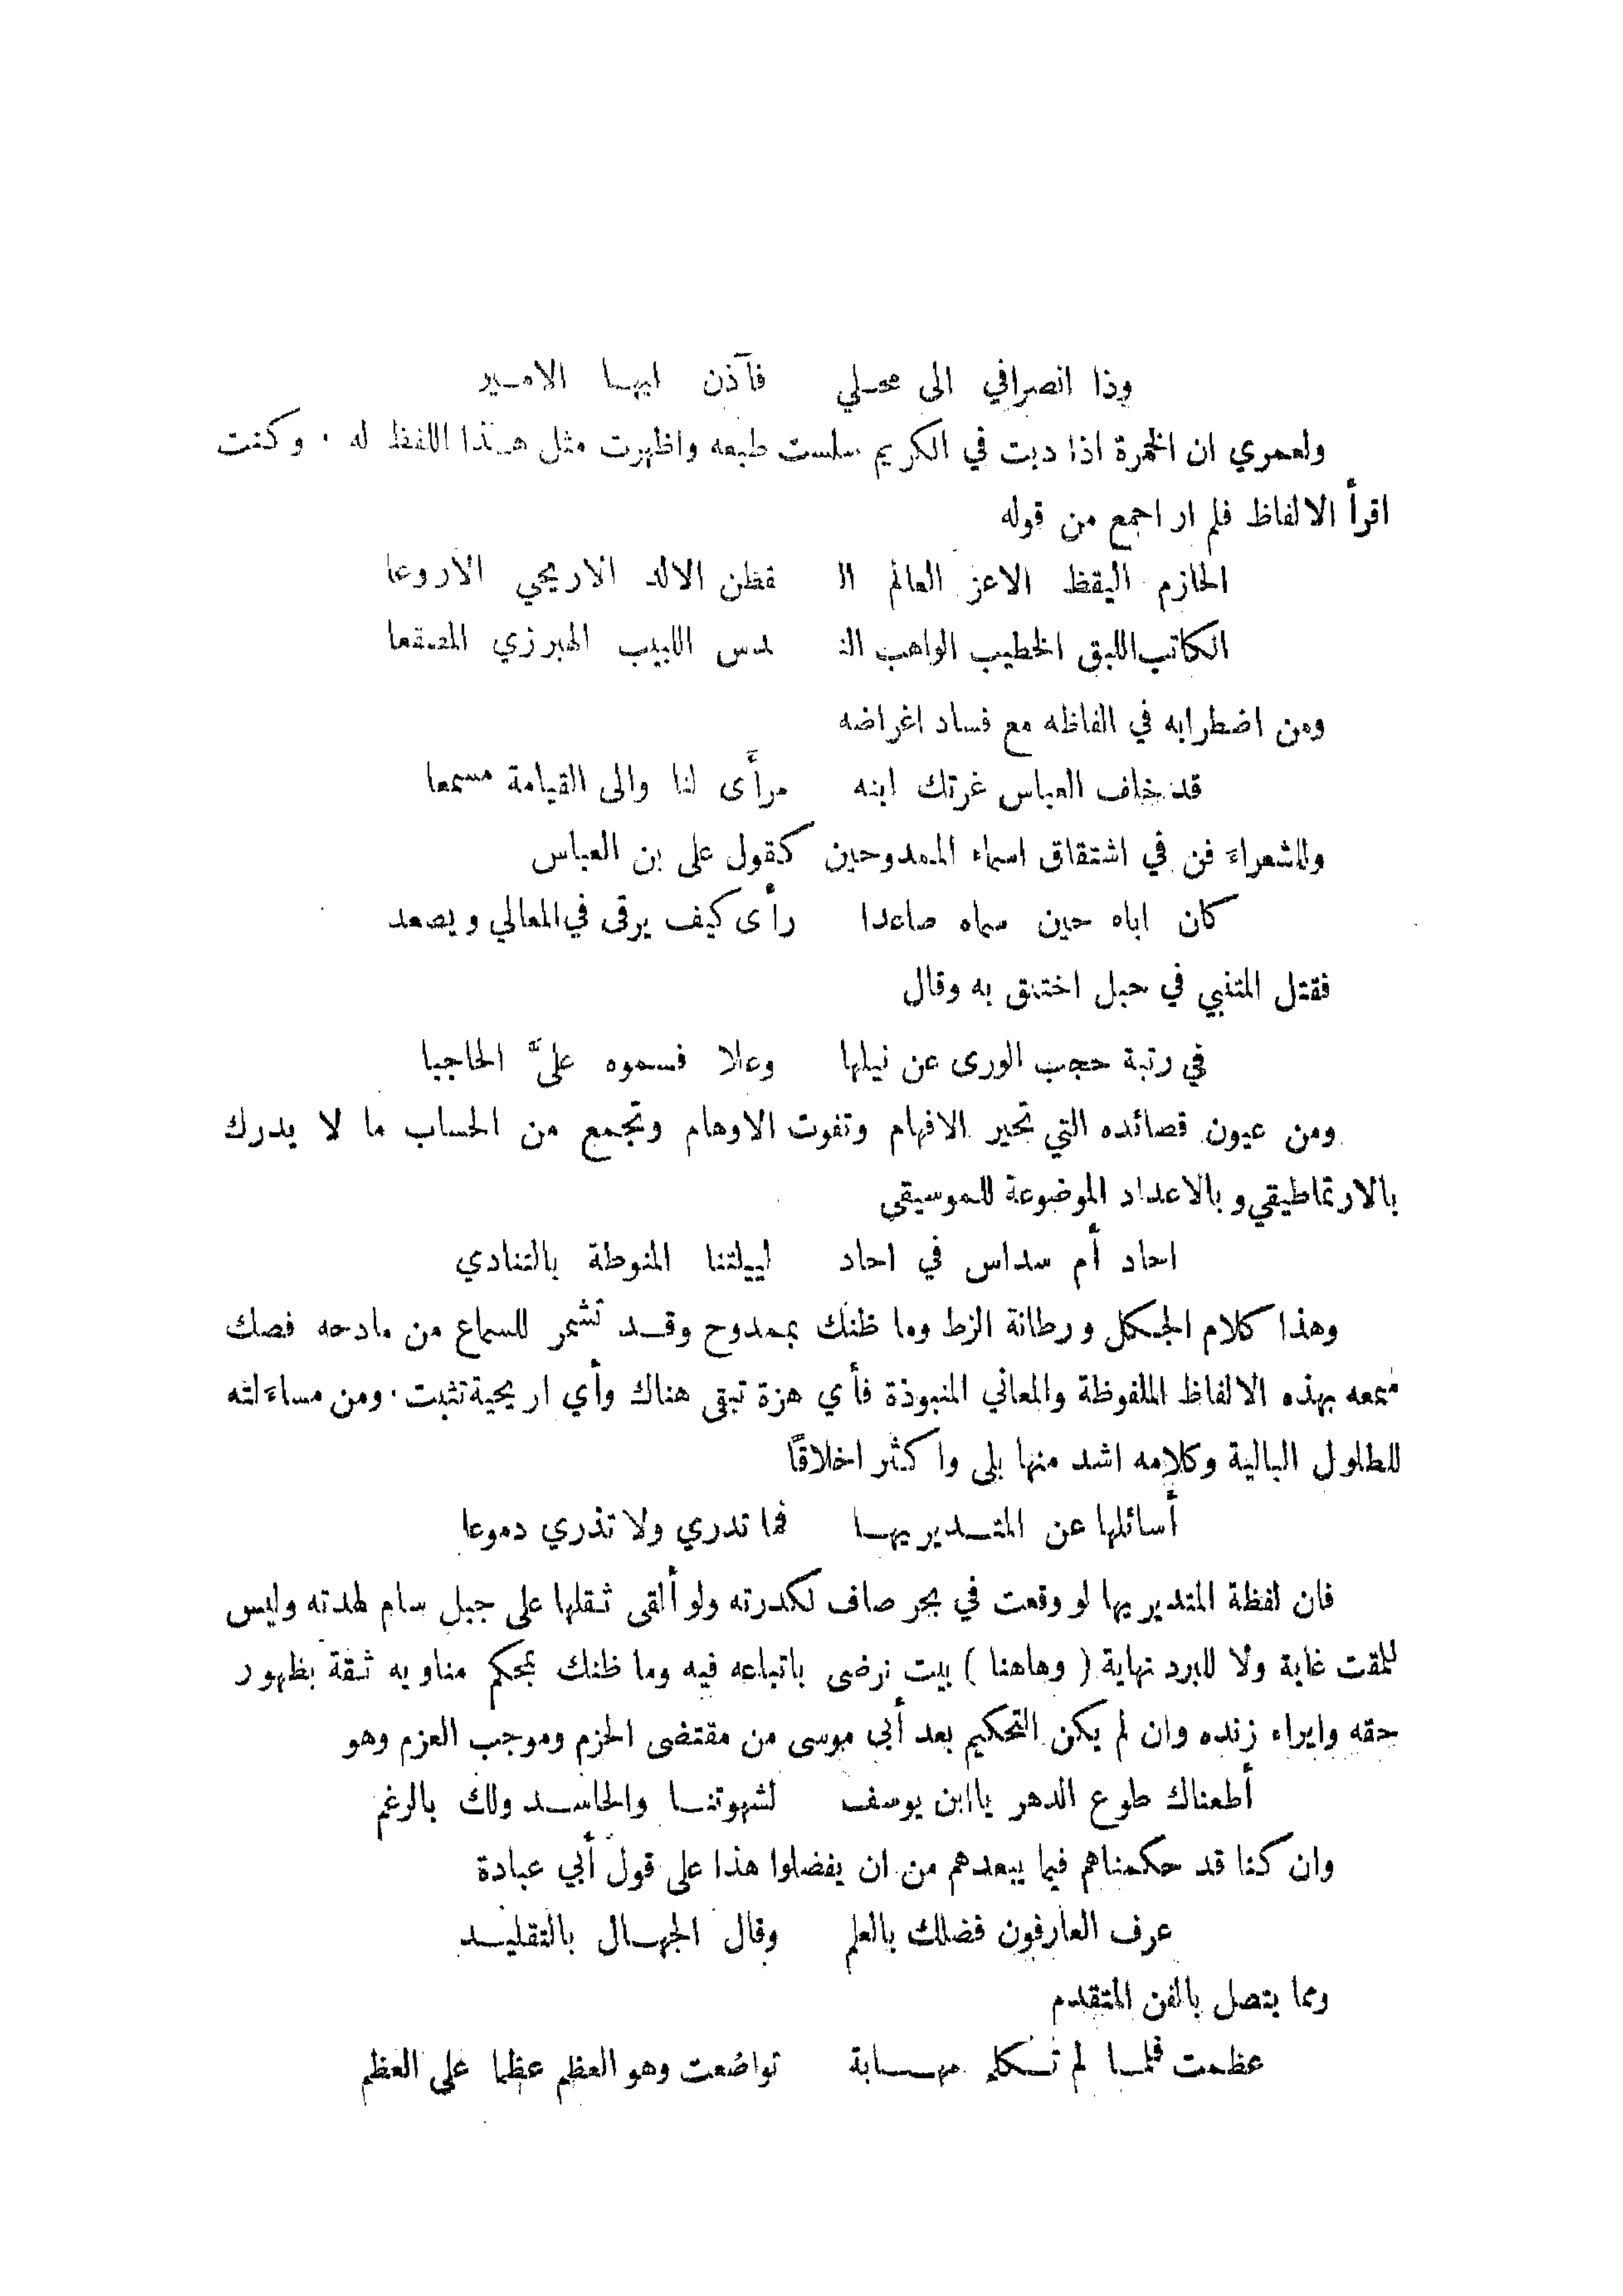 وذا انصرافي الى محلي فآذن ايها الامير
ولعمري ان الخمرة اذا دبت في الكريم سلست طبعه واظهرت مثل هذا اللفظ له . وكنت
اقرأ الالفاظ فلم ار اجمع من قوله
الحازم اليقظ الاعز العالم الـ فطن الالد الاريحي الاروعا
الكاتب اللبق الخطيب الواهب النـ ـدس اللبيب الهبرزي المصقعا
ومن اضطرابه في الفاظه مع فساد اغراضه
قد خلف العباس غرتك ابنه مرأى لنا والى القيامة مسمعا
وللشعراء فن في اشتقاق اسماء الممدوحين كقول علي بن العباس
كان اباه حين سماه صاعدا رأى كيف يرقى في المعالي ويصعد
فقتل المتنبي في حبل اختنق به وقال
في رتبة حجب الورى عن نيلها وعلا فسموه عليّ الحاجبا
ومن عيون قصائده التي تحير الافهام وتفوت الاوهام وتجمع من الحساب ما لا يدرك
بالارتماطيقي وبالاعداد الموضوعة للموسيقى
احاد أم سداس في احاد لييلتنا المنوطة بالتنادي
وهذا كلام الحكل ورطانة الزط وما ظنك بممدوح وقد تشمر للسماع من مادحه فصك
سمعه بهذه الالفاظ الملفوظة والمعاني المنبوذة فأي هزة تبقى هناك وأي اريحية تثبت . ومن مساءلته
للطلول البالية وكلامه اشد منها بلى واكثر اخلاقًا
أسائلها عن المتديريها فما تدري ولا تذري دموعا
فان لفظة المتديريها لو وقعت في بحر صاف لكدرته ولو ألقى ثقلها على جبل سام لهدته وليس
للمقت غاية ولا للبرد نهاية ( وهاهنا ) بيت نرضى باتباعه فيه وما ظنك بمحكم مناويه ثقة بظهور
حقه وايراء زنده وان لم يكن التحكيم بعد أبي موسى من مقتضى الحزم وموجب العزم وهو
أطعناك طوع الدهر ياابن يوسف لشهوتنا والحاسد ولك بالرغم
وان كنا قد حكمناهم فيما يبعدهم من ان يفضلوا هذا على قول أبي عبادة
عرف العارفون فضلك بالعلم وقال الجهال بالتقليد
ومما يتصل بالفن المتقدم
عظمت فلما لم تكلم مهابة تواضعت وهو العظم عظما على العظم